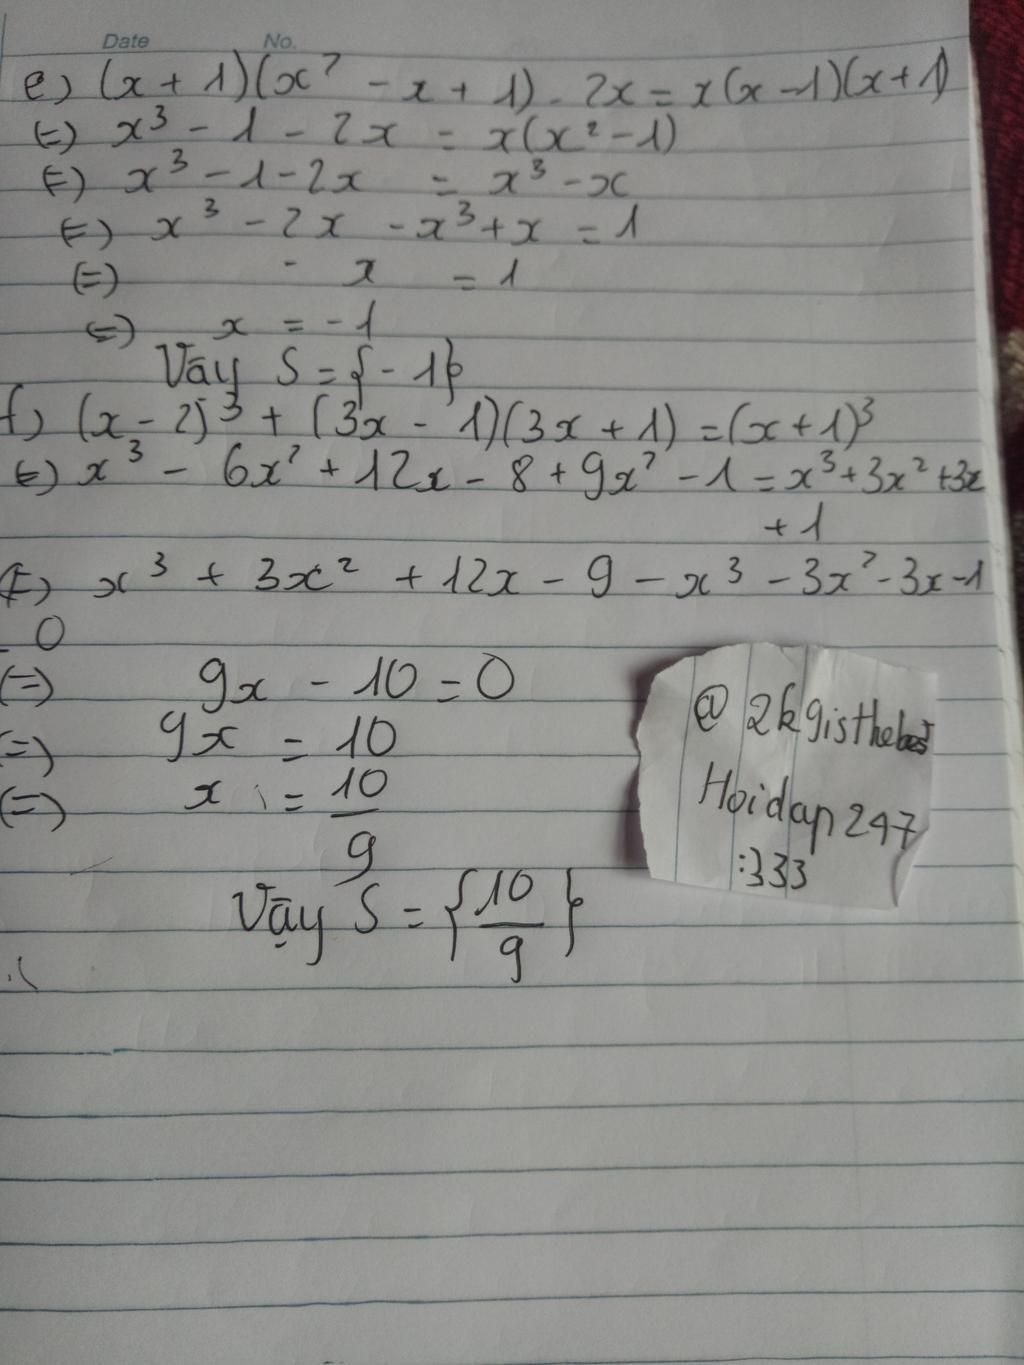 Date No.
e) (x + 1)(x² - x + 1) - 2x = x(x - 1)(x + 1)
(=) x³ - 1 - 2x = x(x² - 1)
(=) x³ - 1 - 2x = x³ - x
(=) x³ - 2x - x³ + x = 1
(=) - x = 1
(=) x = -1
Vãy S = {- 1}
f) (x - 2)³ + (3x - 1)(3x + 1) = (x + 1)³
(=) x³ - 6x² + 12x - 8 + 9x² - 1 = x³ + 3x² + 3x
+ 1
(=) x³ + 3x² + 12x - 9 - x³ - 3x² - 3x - 1
= 0
(=) 9x - 10 = 0
(=) 9x = 10
(=) x = 10/9
Vậy S = {10/9}
@ 2k9isthebest
Hoidap247
:333